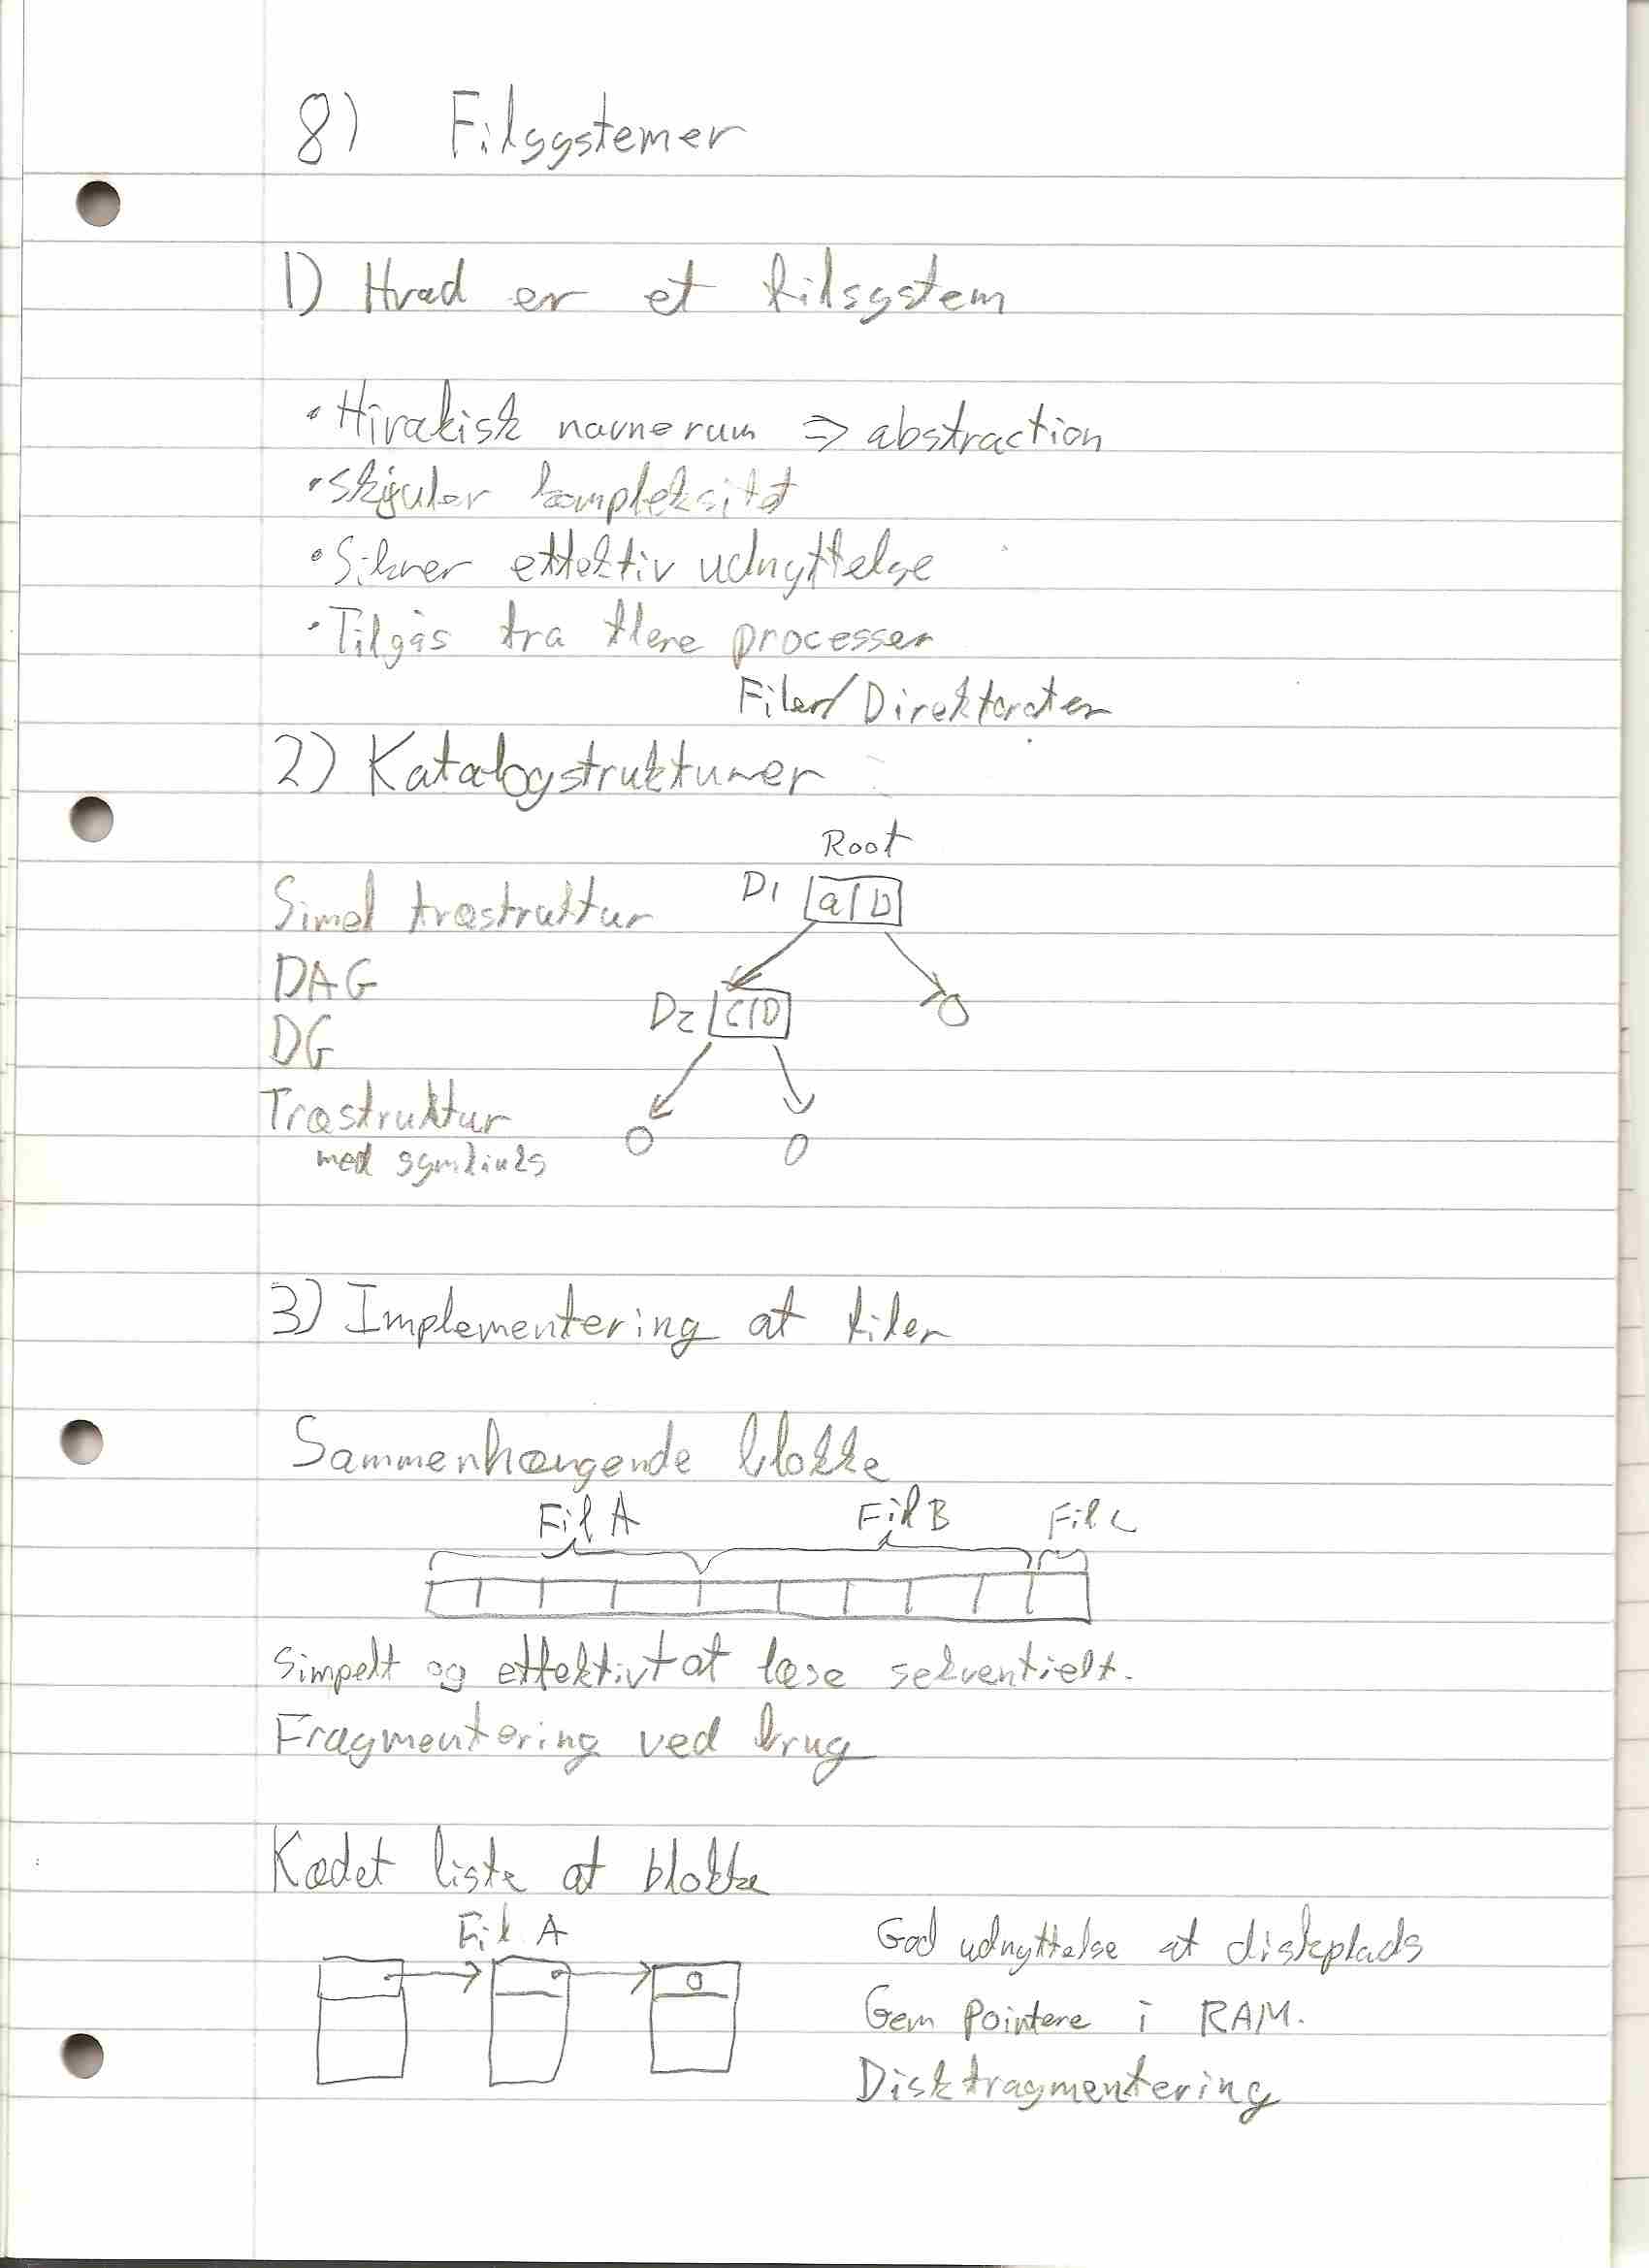 8) Filsystemer
1) Hvad er et filsystem
• Hirakisk navnerum ⇒ abstraction
• Skjuler kompleksitet
• Sikrer effektiv udnyttelse
• Tilgås fra flere processer
Filer/Direktorater
2) Katalogstrukturer
Root
Simel træstruktur
D1 a | b
DAG
D2 C | D
DG
Træstruktur
med symlinks
3) Implementering af filer
Sammenhængende blokke
Fil A Fil B Fil C
Simpelt og effektivt at læse sekventielt.
Fragmentering ved brug
Kædet liste af blokke
Fil A
0
God udnyttelse af diskplads
Gem pointere i RAM.
Diskfragmentering